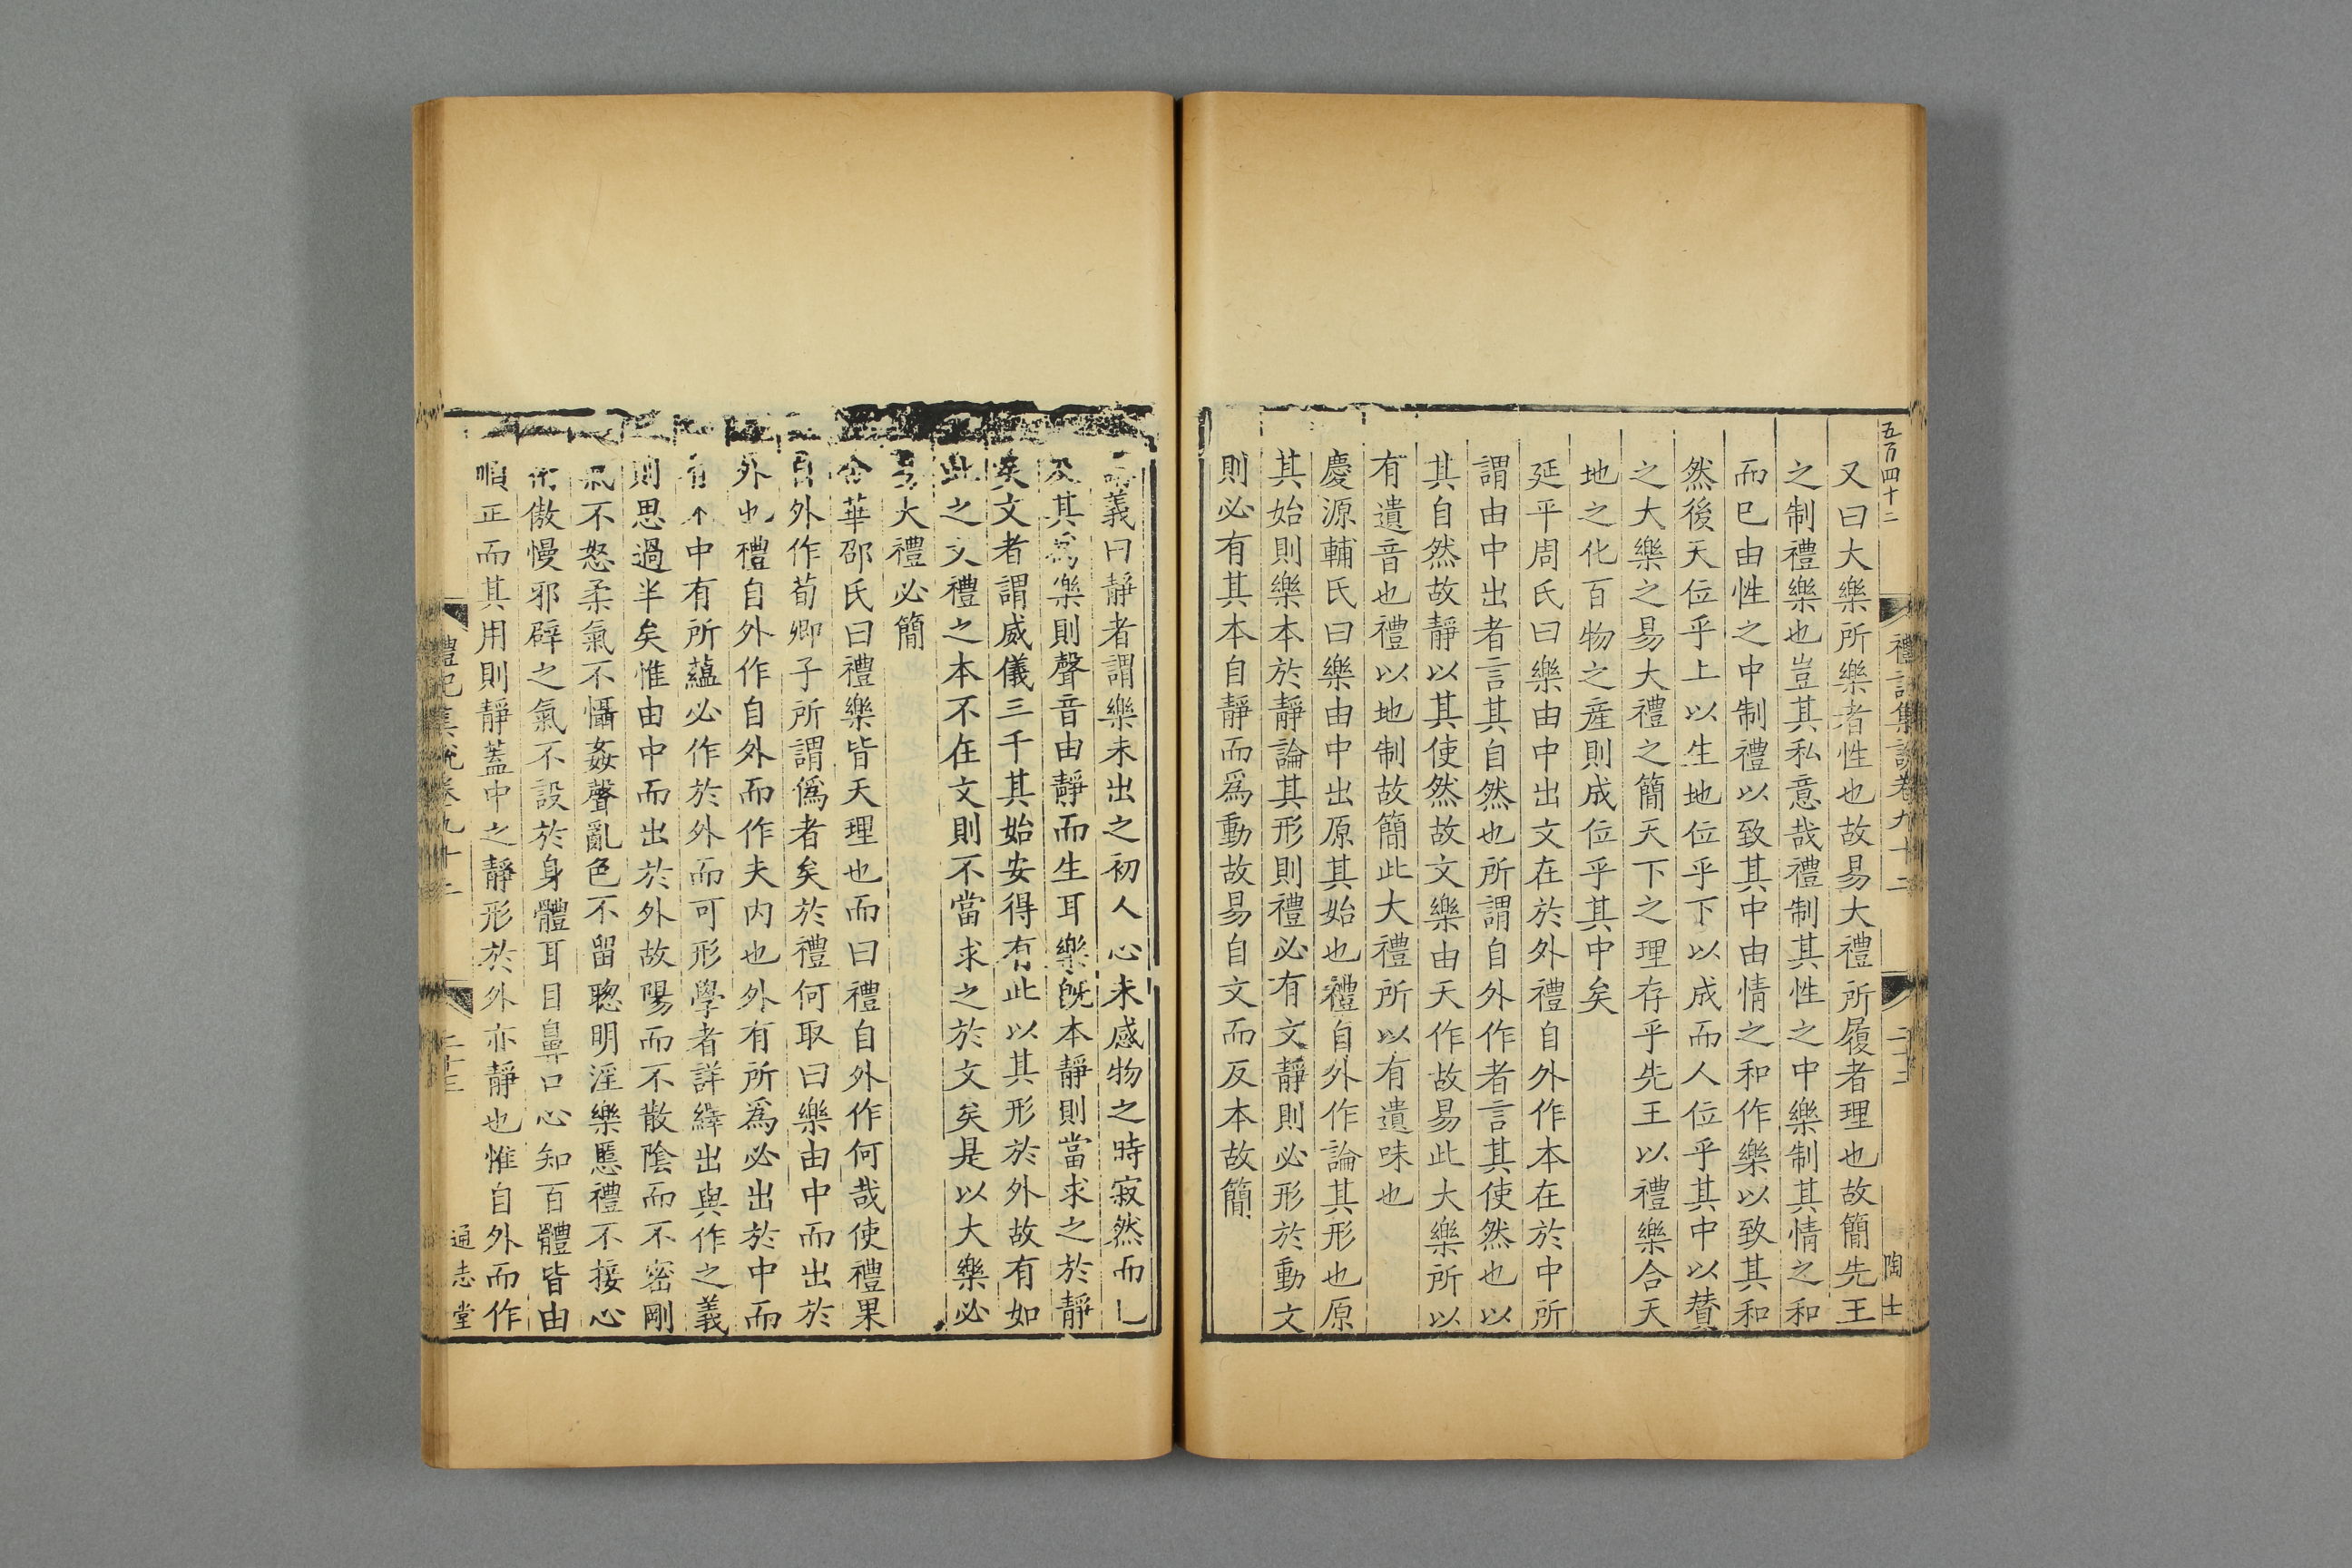 五百四十二
禮記集說卷九十二
二十二
陶士
又曰大樂所樂者性也故易大禮所履者理也故簡先王
之制禮樂也豈其私意哉禮制其性之中樂制其情之和
而已由性之中制禮以致其中由情之和作樂以致其和
然後天位乎上以生地位乎下以成而人位乎其中以賛
之大樂之易大禮之簡天下之理存乎先王以禮樂合天
地之化百物之産則成位乎其中矣
延平周氏曰樂由中出文在於外禮自外作本在於中所
謂由中出者言其自然也所謂自外作者言其使然也以
其自然故靜以其使然故文樂由天作故易此大樂所以
有遺音也禮以地制故簡此大禮所以有遺味也
慶源輔氏曰樂由中出原其始也禮自外作論其形也原
其始則樂本於靜論其形則禮必有文靜則必形於動文
則必有其本自靜而爲動故易自文而反本故簡
義曰靜者謂樂未出之初人心未感物之時寂然而已
及其爲樂則聲音由靜而生耳樂旣本靜則當求之於靜
矣文者謂威儀三千其始安得有此以其形於外故有如
此之文禮之本不在文則不當求之於文矣是以大樂必
易大禮必簡
金華邵氏曰禮樂皆天理也而曰禮自外作何哉使禮果
自外作荀卿子所謂僞者矣於禮何取曰樂由中而出於
外也禮自外作自外而作夫内也外有所爲必出於中而
有中有所蘊必作於外而可形學者詳繹出與作之義
則思過半矣惟由中而出於外故陽而不散陰而不密剛
氣不怒柔氣不懾姦聲亂色不留聰明淫樂慝禮不接心
術傲慢邪辟之氣不設於身體耳目鼻口心知百體皆由
順正而其用則靜蓋中之靜形於外亦靜也惟自外而作
禮記集說卷九十二
二十三
通志堂